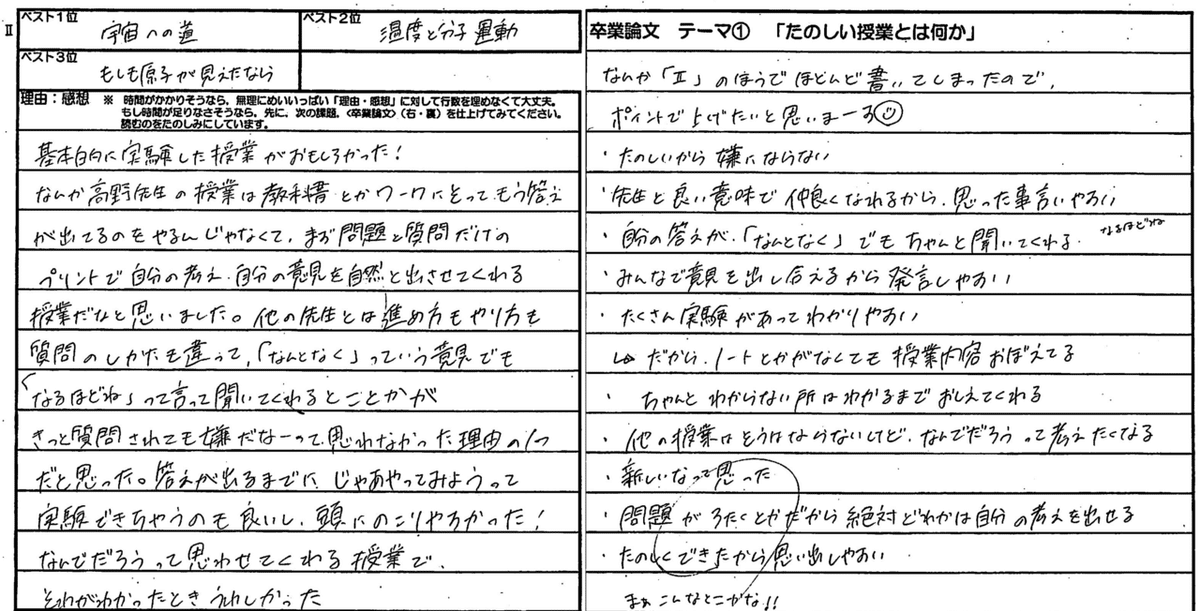 II
ベスト1位
宇宙への道
ベスト2位
温度と分子運動
ベスト3位
もしも原子が見えたなら
理由：感想 ※ 時間がかかりそうなら、無理にめいいっぱい「理由・感想」に対して行数を埋めなくて大丈夫。
もし時間が足りなさそうなら、先に、次の課題、〈卒業論文〉（右・裏）を仕上げてみてください。
読むのをたのしみにしています。
基本的に実験した授業がおもしろかった！
なんか高野先生の授業は教科書とかワークにとってもう答え
が出てるのをやるんじゃなくて、まず問題と質問だけの
プリントで自分の考え、自分の意見を自然と出させてくれる
授業だなと思いました。他の先生とは進め方もやり方も
質問のしかたも違って、「なんとなく」っていう意見でも
「なるほどね」って言って聞いてくれるとことかが
きっと質問されても嫌だなーって思わなかった理由の1つ
だと思った。答えが出るまでに、じゃあやってみようって
実験できちゃうのも良いし、頭にのこりやすかった！
なんでだろうって思わせてくれる授業で、
それがわかったときうれしかった
卒業論文 テーマ① 「たのしい授業とは何か」
なんか「II」のほうでほどんど書いてしまったので、
ポイントで上げたいと思いまーす☺
・たのしいから嫌にならない
・先生と良い意味で仲良くなれるから、思った事言いやすい
・自分の答えが、「なんとなく」でもちゃんと聞いてくれる. なるほどね
・みんなで意見を出し合えるから発言しやすい
・たくさん実験があってわかりやすい
↳ だから、ノートとかがなくても授業内容おぼえてる
・ちゃんとわからない所はわかるまでおしえてくれる
・他の授業はそうはならないけど、なんでだろうって考えたくなる
・新しいなって思った
・問題が3たくとかだから絶対どれかは自分の考えを出せる
・たのしくできたから思い出しやすい
まぁこんなとこかな!!